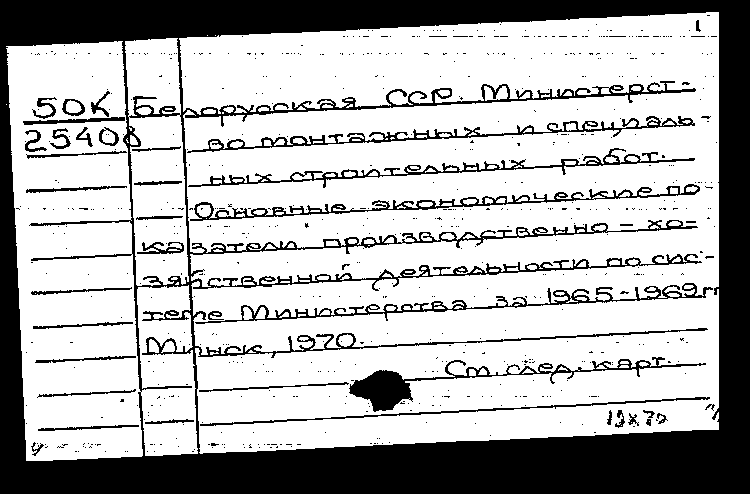 1
50К Белорусская ССР. Министерст-
25408 во монтажных и специаль-
ных строительных работ.
Основные экономические по-
казатели производственно-хо-
зяйственной деятельности по сис-
теме Министерства за 1965-1969гг
Минск, 1970.
См. след. карт.